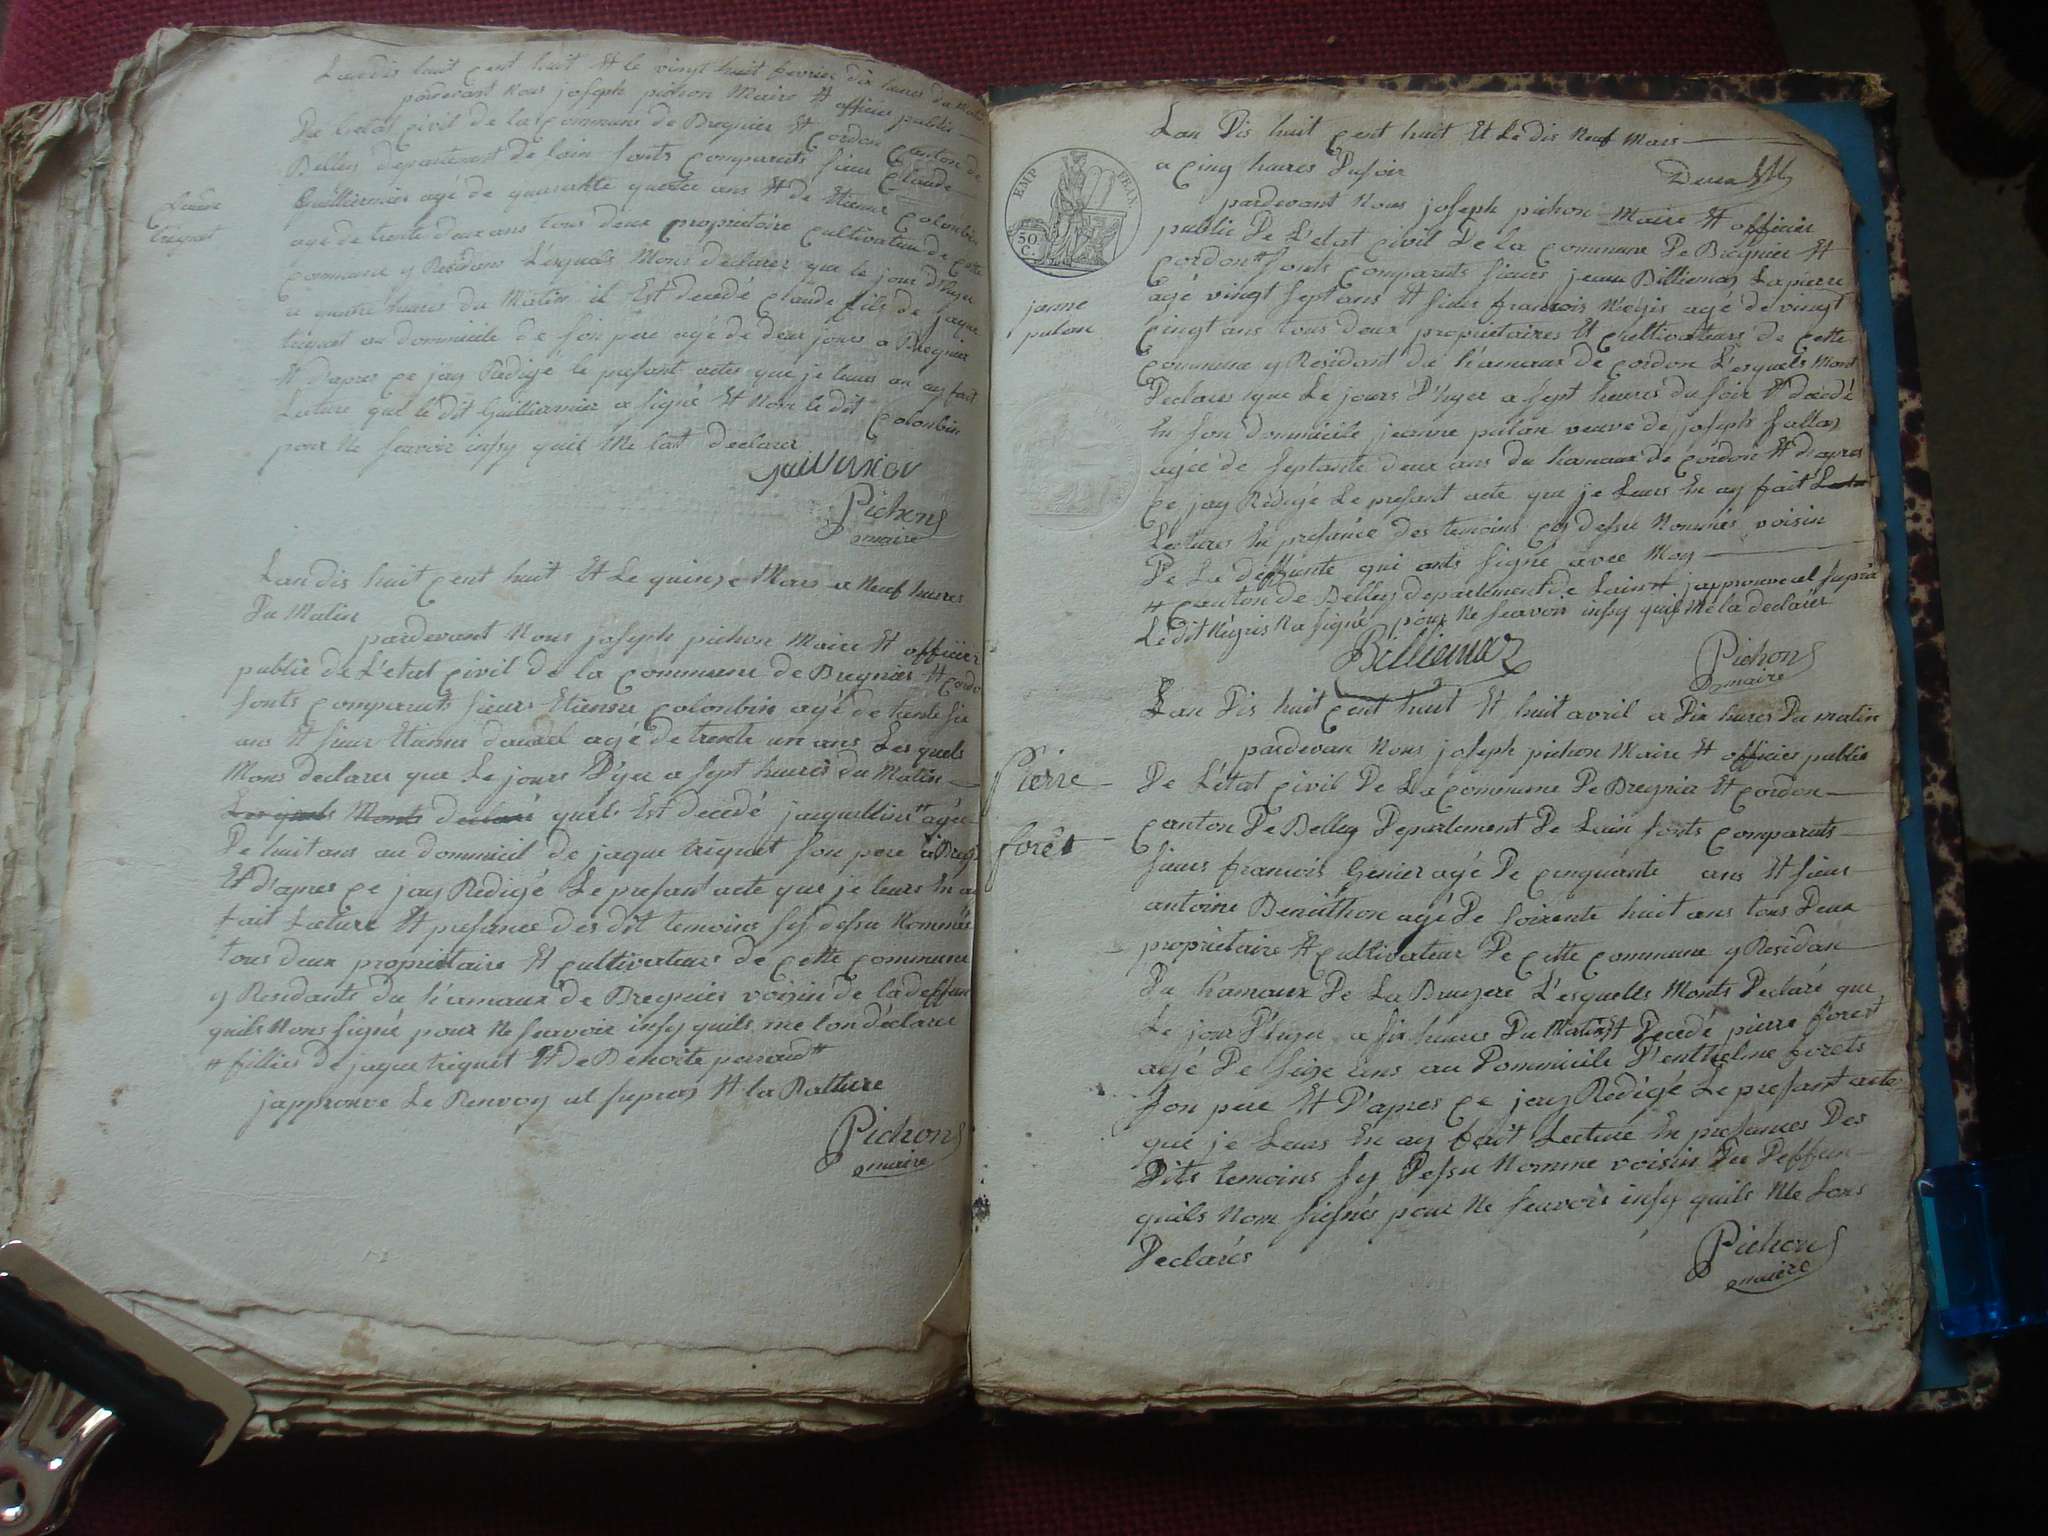 Landis huit cent huit Et le vingt huit fevrier dix heures du matin
pardevant nous joseph pichon Maire Et officier public
De Letat civil de la commune de Bregnier Et Cordon canton de
Belley departement de lain sonts comparuts sieur Claude
Guilliermier agé de quarante quatre ans Et de Etienne Colonbin
agé de trente deux ans tous deux propriétaire cultivateur de cette
commune y Residans Lesquels Mons declarer que le jour d'hyer
a quatre heures du Matin il Est decedé Claude fils de jaque
triquet au dommicile de son pere agé de deux jours a Bregnier
Et d'apres ce jay Redigé le presant acte que je leurs an ay fait
Lecture que le dit Guilliermier a signé Et Non le dit Colonbin
pour Ne seavoir insy quil Me lat declarer
Claude
triquet
Pichon
maire
Landis huit cent huit Et Le quinze Mars a Neuf heures
Du Matin
pardevant Nous joseph pichon Maire Et officier
public de L'etat civil de la commune de Bregnier Et Cordo
sonts comparuts sieurs Etienne Colonbin agé de trente six
ans Et sieur Etienne agé de trente un ans Lesquels
Mons declarer que Le jours D'yer a sept heures du Matin
Lesquels Monts declaré quel Est decedé jaquelline # agée
De huit ans au dommicil de jaque triquet son pere a Breg
Et D'apres ce jay Redigé Le presant acte que je leurs En ai
fait Lecture Et presance des dit temoins sy desu Nommés
tous deux proprietaire Et cultivateurs de cette commune
y Residants du hamaux de Bregnier voisin de la deffun
quils Nons signé pour Ne seavoir insy quils me lon déclarer
# fillies de jaque triquet Et de Benoite perraud #
japprouve Le Renvoy at supras Et la Ratture
Pichon
maire
EMP FRAN
50 C.
Lan Dis huit cent huit Et Le dis Neuf Mars
a cinq heures Dusoir
pardevant Nous joseph pichon Maire Et officier
public De L'etat civil De la commune De Bregnier Et
Cordon # sonts comparuts sieurs jean Billiemaz Lapierre
agé vingt sept ans Et sieur francois Négris agé de vingt
cinq ans tous deux proprietaires Et cultivateurs de cette
commune y Residant du hamaux de Cordon Lesquels Mont
Declarer que Le jours D'hyer a sept heures du soir Et decedé
En son dommicile jeanne pulan veuve de joseph
agée de septante deux ans du hamaux de Cordon Et d'apres
ce jay Rédigé Le presant acte que je Leurs En ay fait
Lectures En presance des temoins cy desu Nommés voisin
De La deffunte qui onts signé avec Moy
# canton de Belley departement de Lain # japprouve at supra
Le dit Négris N a signé pour Ne seavoir insy quil Me la declarer
janne
pulan
Billiemaz
Pichon
maire
Lan Dis huit cent huit Et huit avril a Dix heures Du matin
pardevan Nous joseph pichon Maire Et officier public
De Létat civil De La commune De Bregnier Et Cordon
canton De Belley Departement De Lain sonts comparuts
sieurs francois Genier agé De cinquante ans Et sieur
antoine Benuithon agé De soixente huit ans tous Deux
proprietaire Et cultivateur De cette commune y Residan
Du hamaux De La Bruyere L'esquells Monts Declaré que
Le jour D'hyer a six heures Du Matin Et Decedé pierre forest
agé De seize ans au Dommicile D'enthelme forets
son pere Et D'apres ce jay Rédigé Le presant acte
que je Leurs En ay fait Lecture En presances Des
Dits temoins sy Desu Nomme voisin Du Deffun
quils Non signés pour Ne seavoir insy quils Me Lons
Declarés
Pierre
forêt
Pichon
maire